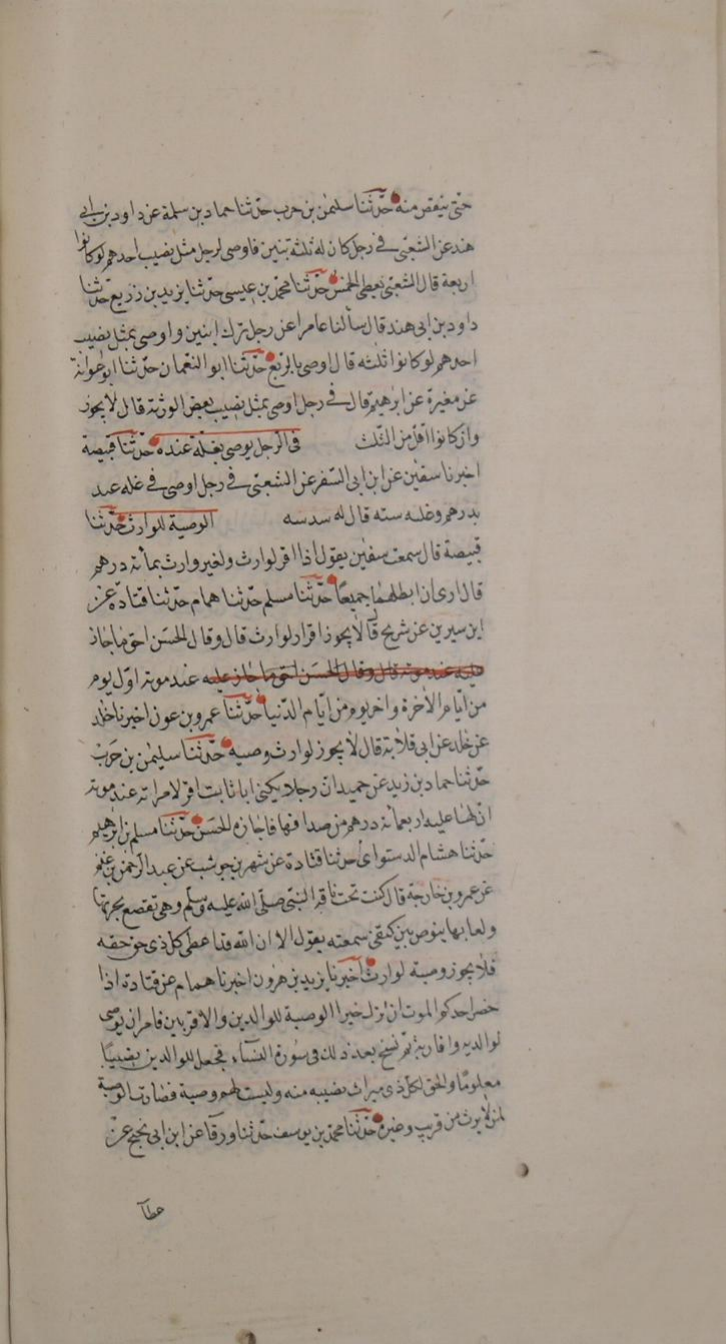 حتى ينقص منه حدثنا سليمن بن حرب حدثنا حماد بن سلمة عن داود بن ابي
هند عن الشعبي في رجل كان له ثلثة بنين فاوصى لرجل مثل نصيب احدهم لو كانوا
اربعة قال الشعبي يعطى الخمس حدثنا محمد بن عيسى حدثنا يزيد بن زريع حدثنا
داود بن ابي هند قال سألنا عامرا عن رجل ترك ابنين واوصى بمثل نصيب
احدهم لو كانوا ثلثه قال اوصى بالربع حدثنا ابو النعمان حدثنا ابو عوانة
عن مغيرة عن ابرهيم قال في رجل اوصى بمثل نصيب بعض الورثة قال لا يجوز
وان كانوا اقل من الثلث في الرجل يوصى بغلة عنده حدثنا قبيصة
اخبرنا سفين عن ابن ابي السفر عن الشعبي في رجل اوصى في غله عبد
بدرهم وغله سته قال له سدسه الوصية للوارث حدثنا
قبيصة قال سمعت سفين يقول اذا اقر لوارث ولغير وارث بمائة درهم
قال ارى ان ابطلهما جميعا حدثنا مسلم حدثنا همام حدثنا قتادة عن
ابن سيرين عن شريح قال لا يجوز اقرار لوارث قال وقال الحسن احق ما جاز
عليه عند موته قال وقال الحسن احق ما جاز عليه عند موته اول يوم
من ايام الاخرة واخر يوم من ايام الدنيا حدثنا عمرو بن عون اخبرنا خلد
عن خلد عن ابي قلابة قال لا يجوز لوارث وصية حدثنا سليمن بن حرب
حدثنا حماد بن زيد عن حميد ان رجلا يكنى ابا ثابت اقر لامراته عند موته
ان لها عليه اربعمائة درهم من صداقها فاجازه الحسن حدثنا مسلم بن ابرهيم
حدثنا هشام الدستوائي حدثنا قتادة عن شهر بن حوشب عن عبد الرحمن بن غنم
عن عمرو بن خارجة قال كنت تحت ناقة النبي صلى الله عليه وسلم وهي تقصع بجرتها
ولعابها ينوص بين كتفي سمعته يقول الا ان الله قد اعطى كل ذي حق حقه
فلا يجوز وصية لوارث اخبرنا يزيد بن هرون اخبرنا همام عن قتادة اذا
حضر احدكم الموت ان ترك خيرا الوصية للوالدين والاقربين فامر ان يوصى
لوالديه واقاربه ثم نسخ بعد ذلك في سورة النساء فجعل للوالدين نصيبا
معلوما والحق لكل ذي ميراث نصيبه منه وليست لهم وصية فصارت الوصية
لمن لا يرث من قريب وغيره حدثنا محمد بن يوسف حدثنا ورقا عن ابن ابي نجيح عن
عطآ